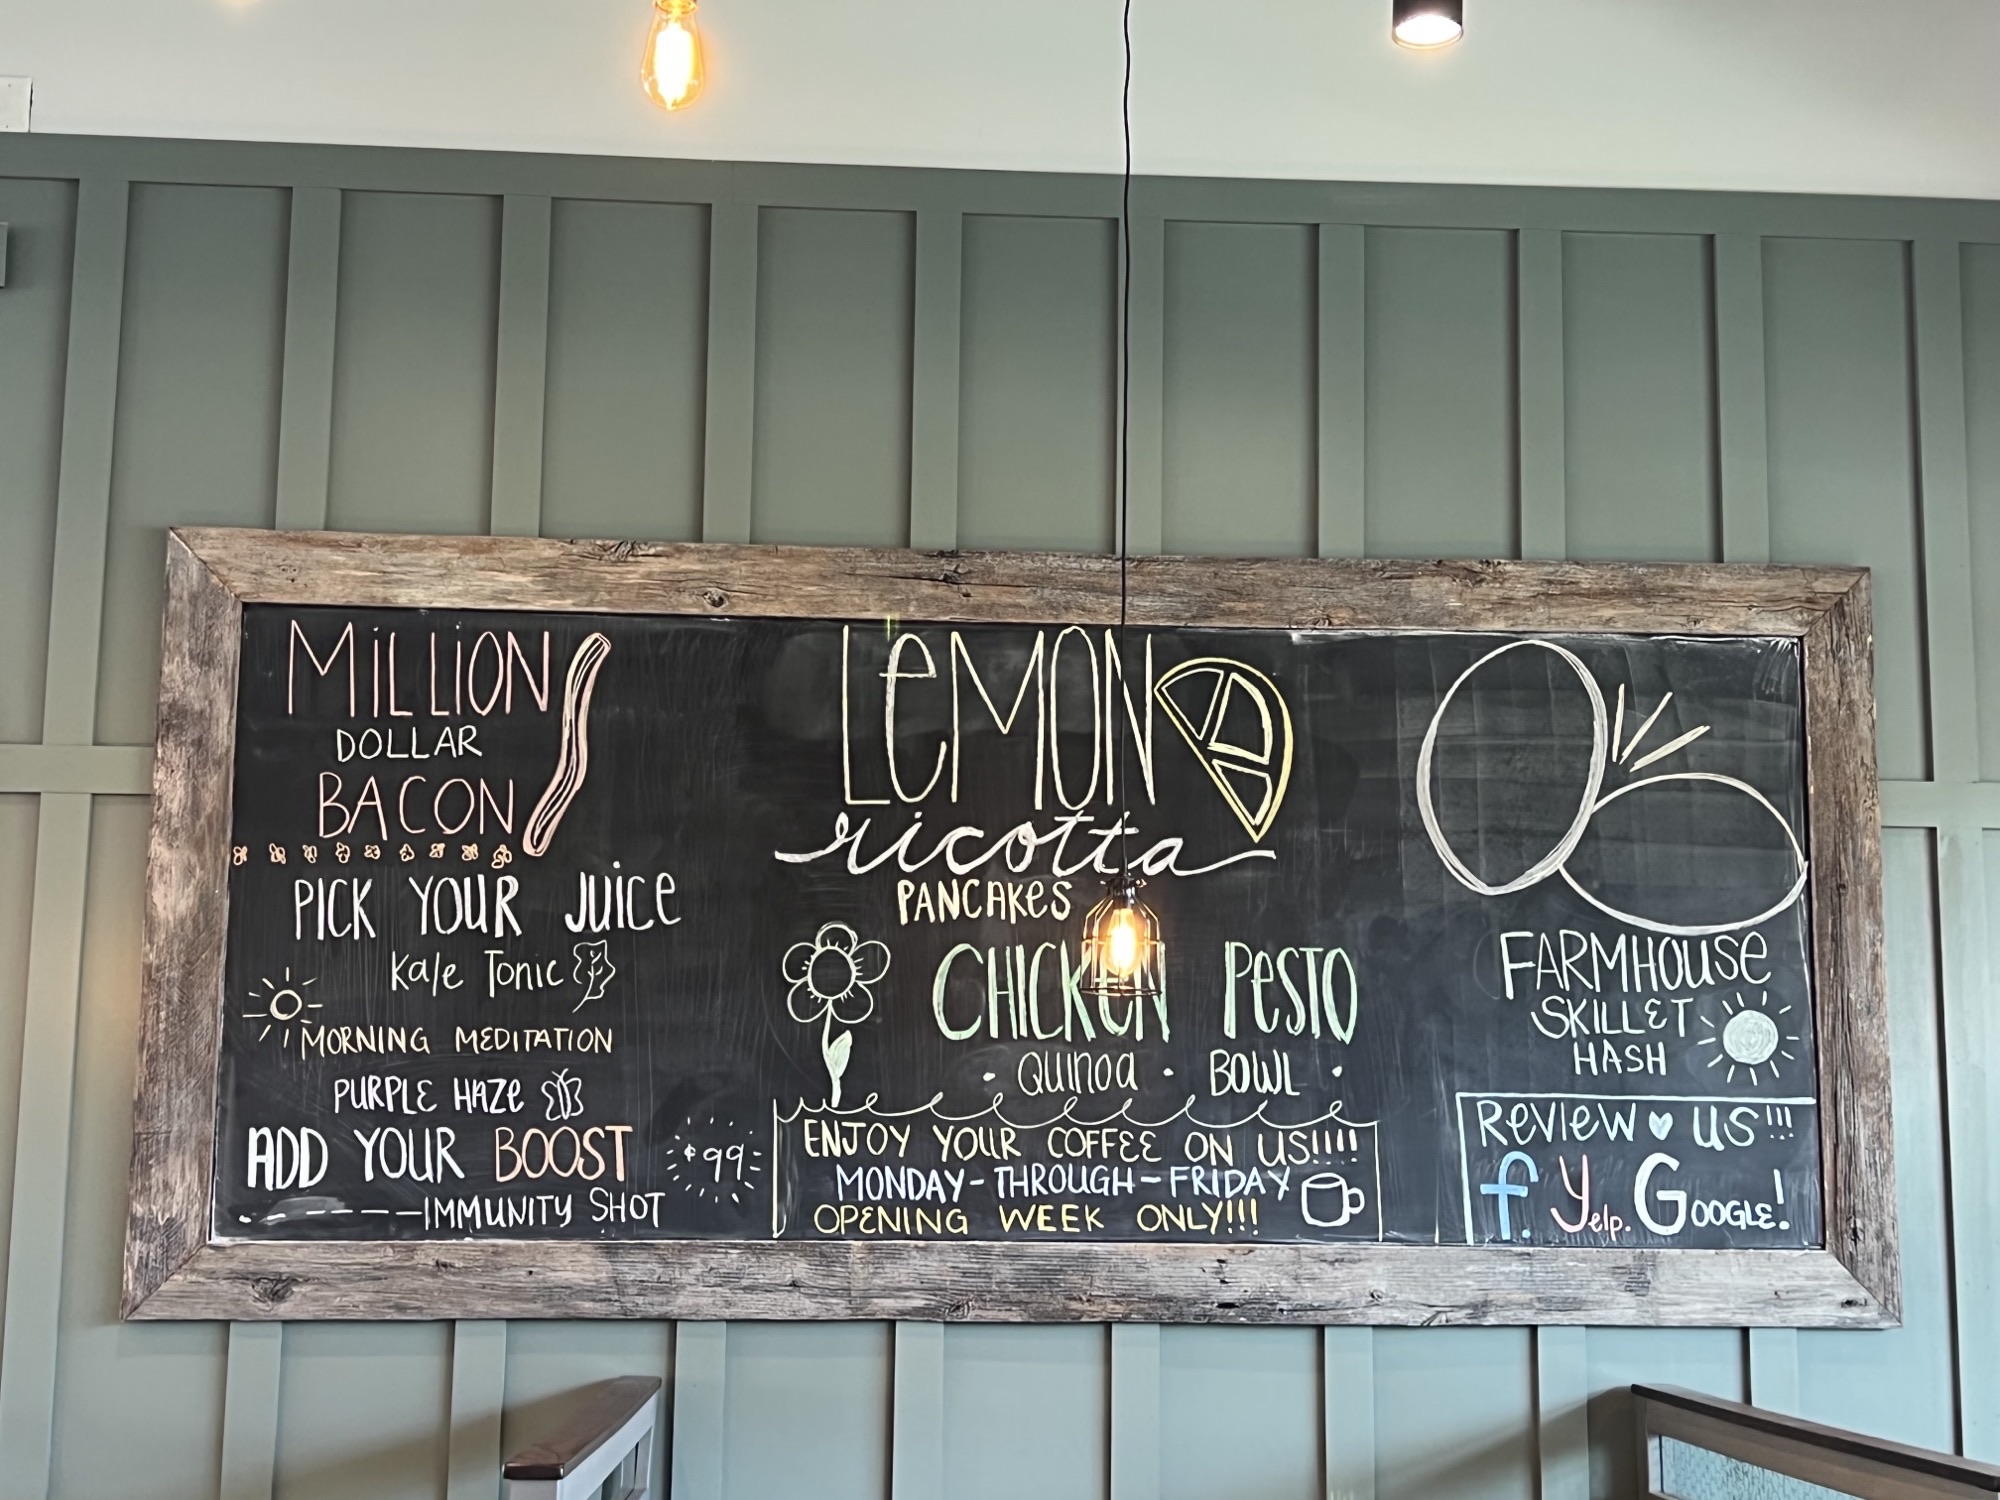 MiLLiON
DOLLAR
BACON
PICK YOUR JUiCE
Kale Tonic
MORNING MEDITATION
PURPLE HAZE
ADD YOUR BOOST
99
IMMUNITY SHOT
LeMON
ricotta
PANCAKES
CHICKEN PeSTO
QUINOA • BOWL •
ENJOY YOUR COFFEE ON US!!!!
MONDAY-THROUGH-FRIDAY
OPENING WEEK ONLY!!!
FARMHOUSe
SKILLET
HASH
ReVIeW ♥ US!!!
f. Yelp. GOOGLE!